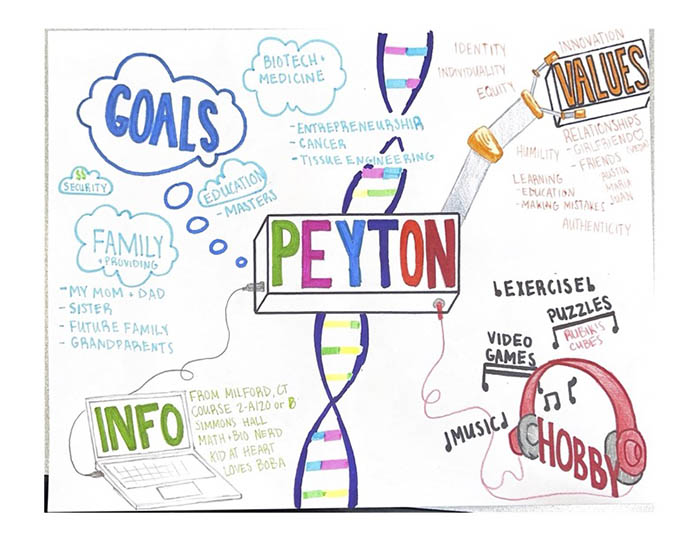 GOALS
BIOTECH +
MEDICINE
- ENTREPRENEURSHIP
- CANCER
- TISSUE ENGINEERING
$$
SECURITY
EDUCATION
- MASTERS
FAMILY
+ PROVIDING
- MY MOM + DAD
- SISTER
- FUTURE FAMILY
- GRANDPARENTS
PEYTON
IDENTITY
INDIVIDUALITY
EQUITY
INNOVATION
VALUES
HUMILITY
RELATIONSHIPS
- GIRLFRIEND♡
- FRIENDS
AUSTIN
MARIA
JUAN
LEARNING
- EDUCATION
- MAKING MISTAKES
AUTHENTICITY
INFO
FROM MILFORD, CT
COURSE 2-A/20 or B
SIMMONS HALL
MATH + BIO NERD
KID AT HEART
LOVES BOBA
EXERCISE
PUZZLES
RUBIK'S
CUBES
VIDEO
GAMES
MUSIC
HOBBY